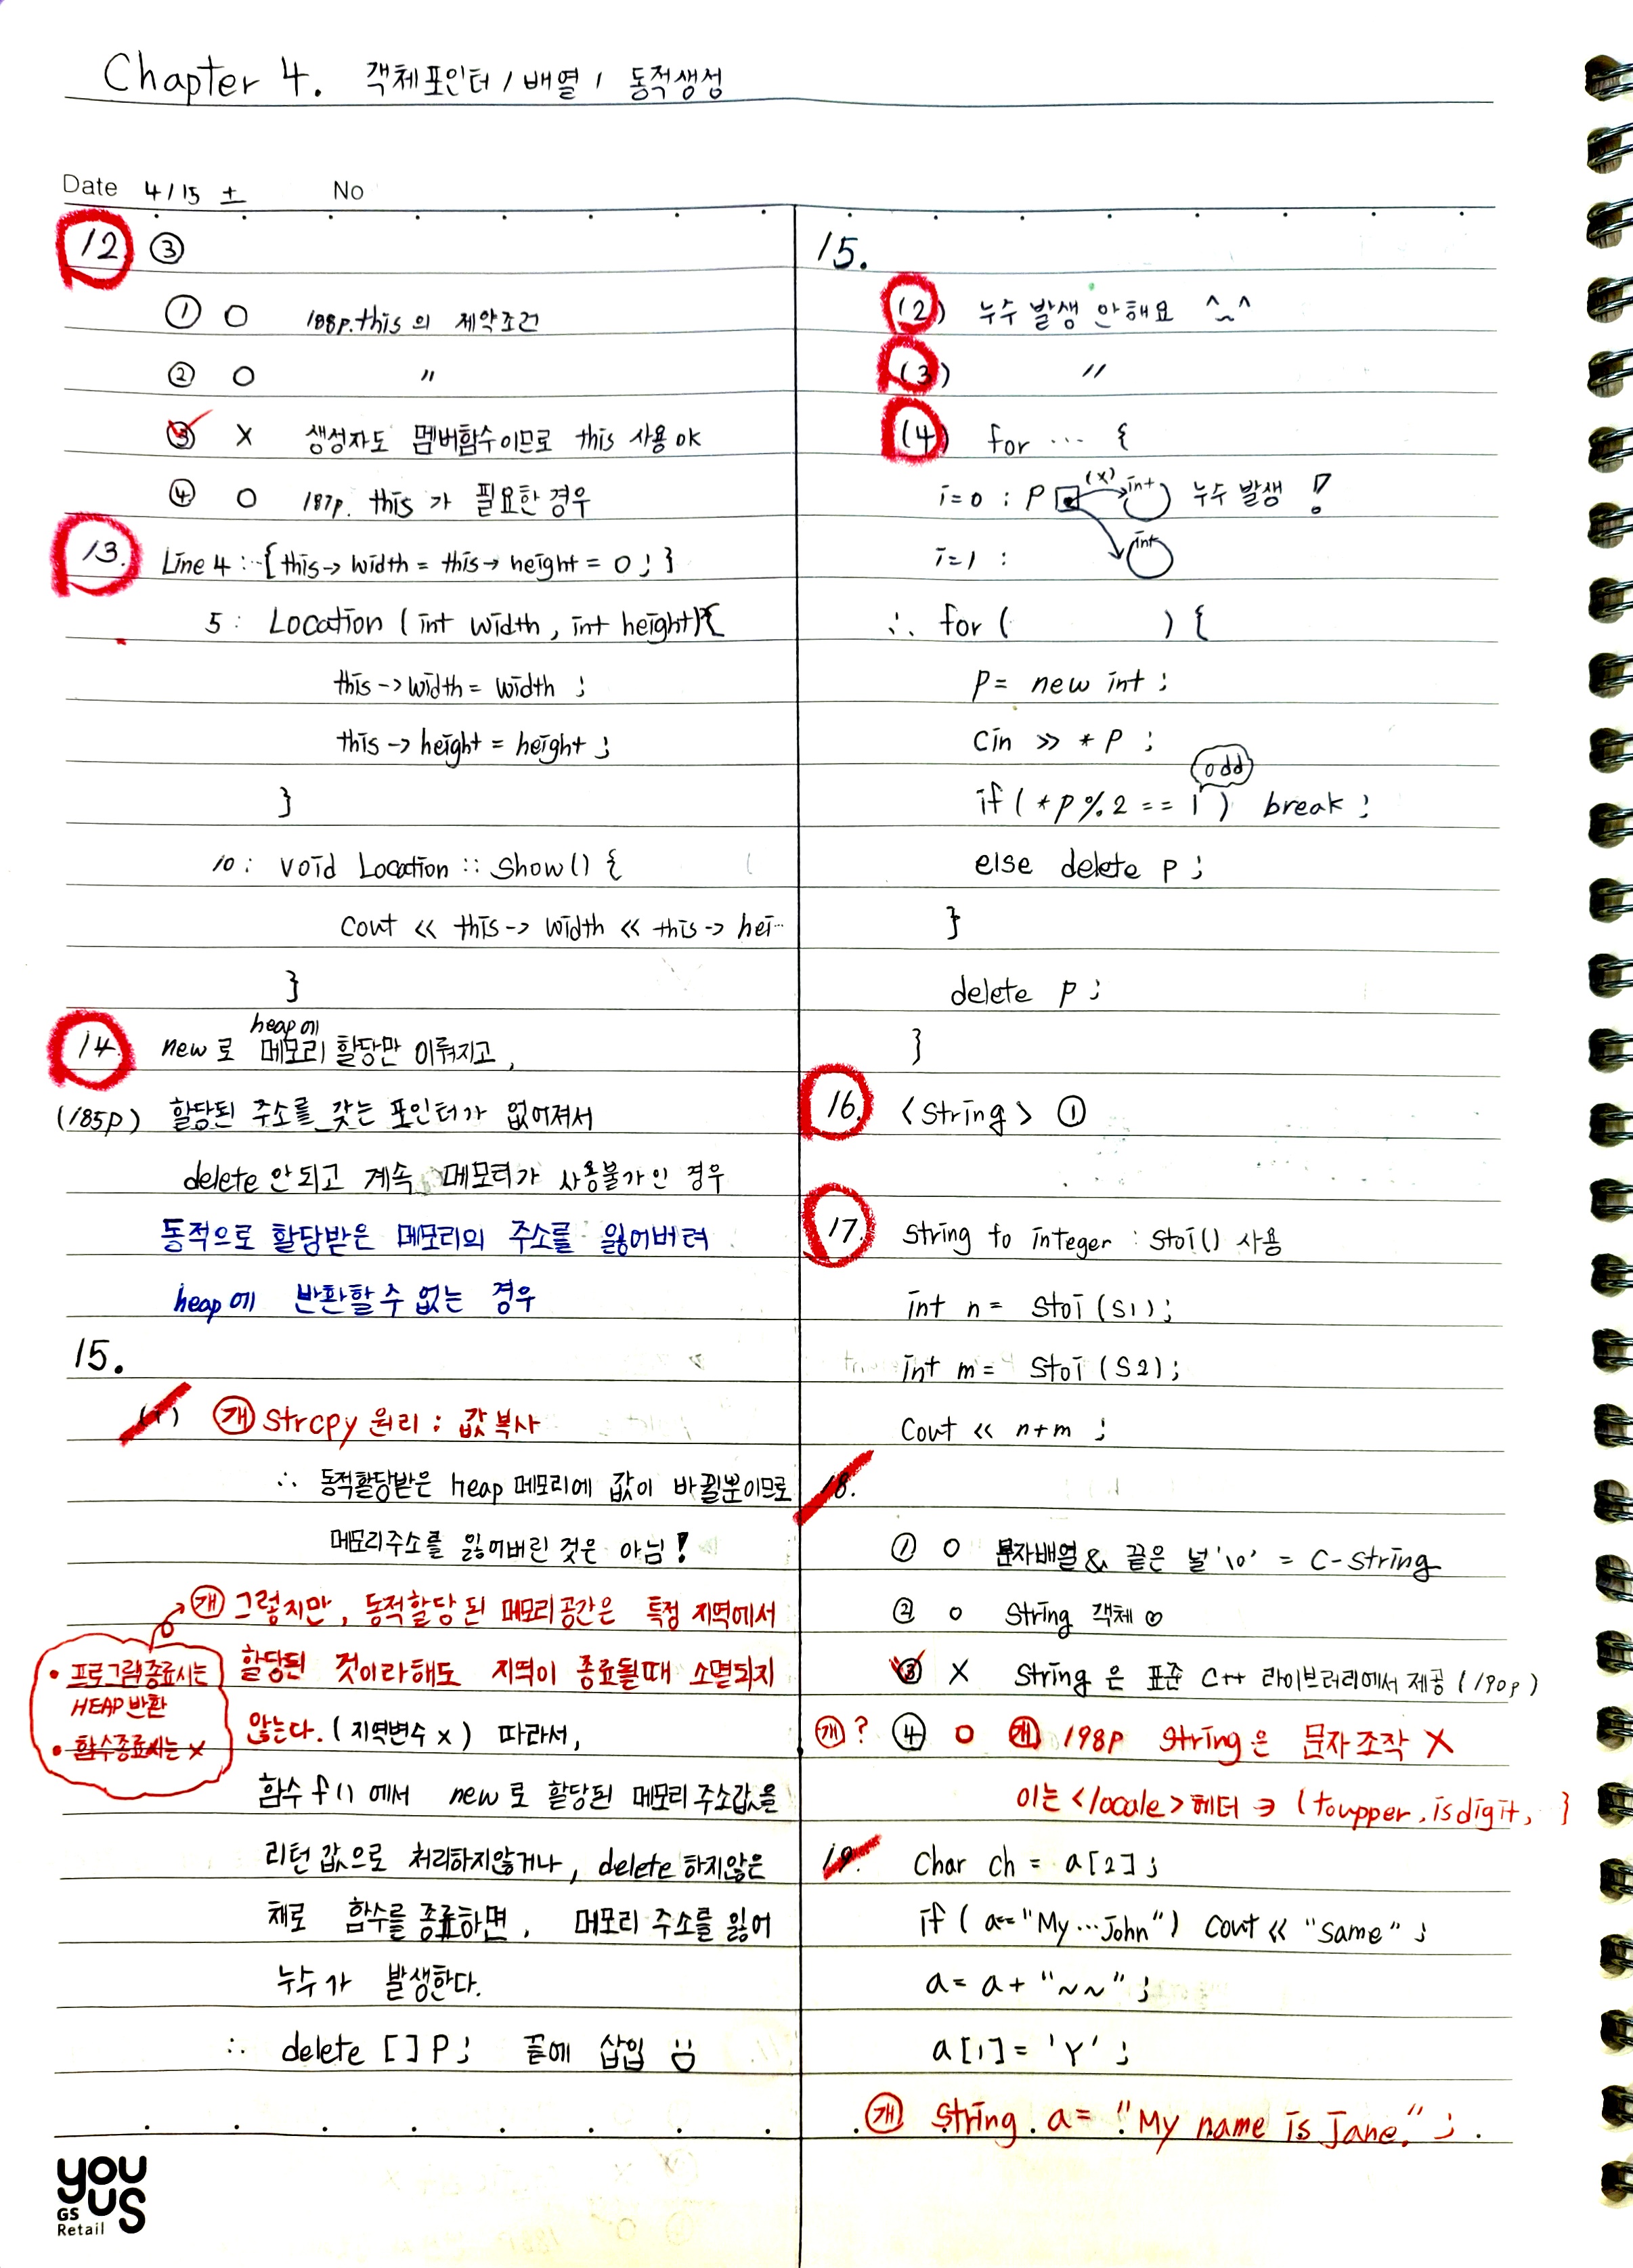 Chapter 4. 객체포인터 / 배열 / 동적생성
Date 4/15 土 No
12 ③
① O 188p. this의 제약조건
② O 〃
③ X 생성자도 멤버함수이므로 this 사용 ok
④ O 187p. this가 필요한 경우
13. Line 4 : … { this→ width = this→ height = 0 ; }
5 : Location ( int width, int height){
this → width = width ;
this → height = height ;
}
10 : void Location :: show() {
cout << this -> width << this -> hei…
}
heap에
14. new로 메모리 할당만 이뤄지고,
(185p) 할당된 주소를 갖는 포인터가 없어져서
delete 안되고 계속 메모리가 사용불가인 경우
동적으로 할당받은 메모리의 주소를 잃어버려
heap에 반환할 수 없는 경우
15.
(1) 개 Strcpy 원리 : 값 복사
∴ 동적할당받은 heap 메모리에 값이 바뀔뿐이므로
메모리주소를 잃어버린 것은 아님!
개 그렇지만, 동적할당 된 메모리공간은 특정 지역에서
할당된 것이라해도 지역이 종료될때 소멸되지
않는다. (지역변수 x) 따라서,
• 프로그램종료시는
HEAP 반환
• 함수종료시는 X
함수 f() 에서 new로 할당된 메모리 주소값을
리턴 값으로 처리하지않거나, delete 하지않은
채로 함수를 종료하면, 메모리 주소를 잃어
누수가 발생한다.
∴ delete [] P; 끝에 삽입
15.
(2) 누수 발생 안해요 ^_^
(3) 〃
(4) for … {
i=0 : P (x) int 누수 발생 !
i=1 : int
∴ for ( ) {
P = new int ;
cin >> * P ;
odd
if ( *P % 2 == 1 ) break ;
else delete P ;
}
delete P ;
}
16. <string> ①
17. String to integer : stoi() 사용
int n = stoi (S1) ;
int m = stoi (S2) ;
cout << n+m ;
18.
① O 문자배열 & 끝은 널 '\0' = C-string
② O string 객체
③ X string은 표준 C++ 라이브러리에서 제공 (190p)
개? ④ O 개 198p string은 문자조작 X
이는 <locale> 헤더 ∋ ( toupper, isdigit, }
19. char ch = a[2] ;
if ( a=="My…John") cout << "same" ;
a = a + "~~" ;
a[1] = 'Y' ;
개 string a = "My name is Jane." ;
YOU
US
GS
Retail